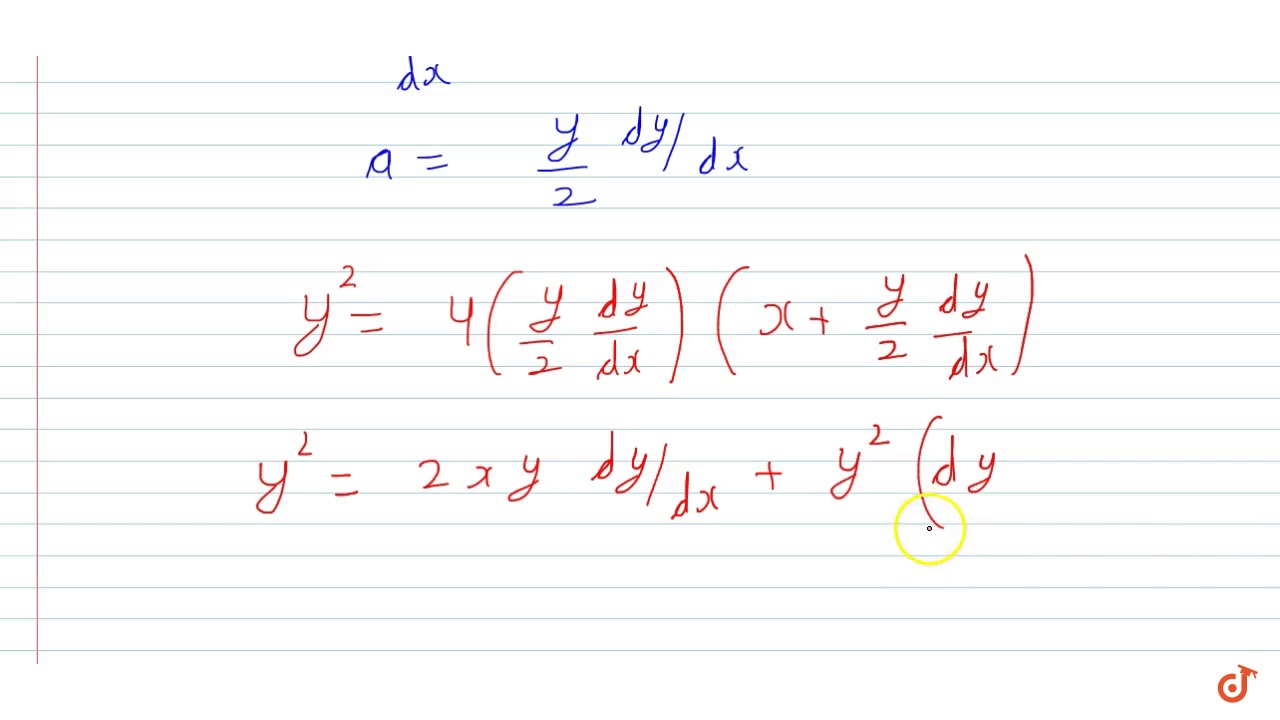 dx
a = y/2 dy/dx
y² = 4(y/2 dy/dx)(x + y/2 dy/dx)
y² = 2xy dy/dx + y² (dy